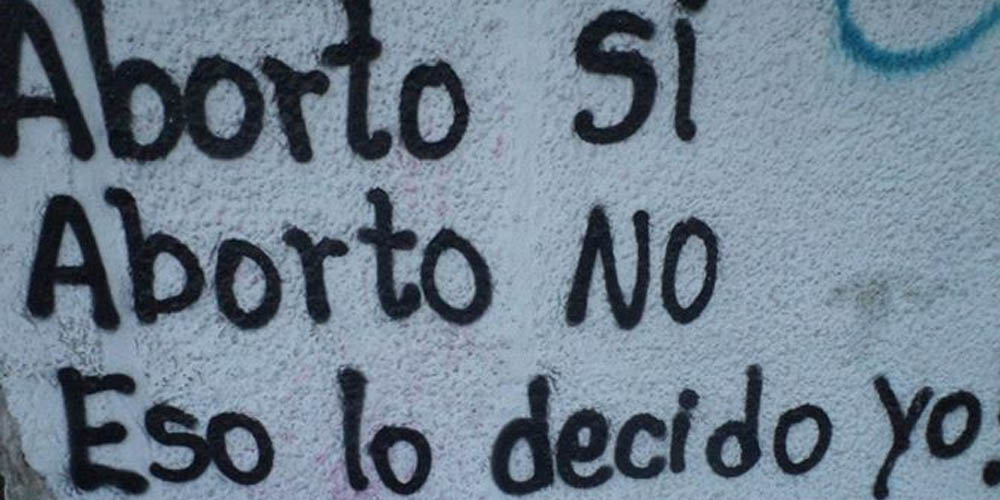 Aborto Si
Aborto NO
Eso lo decido yo!